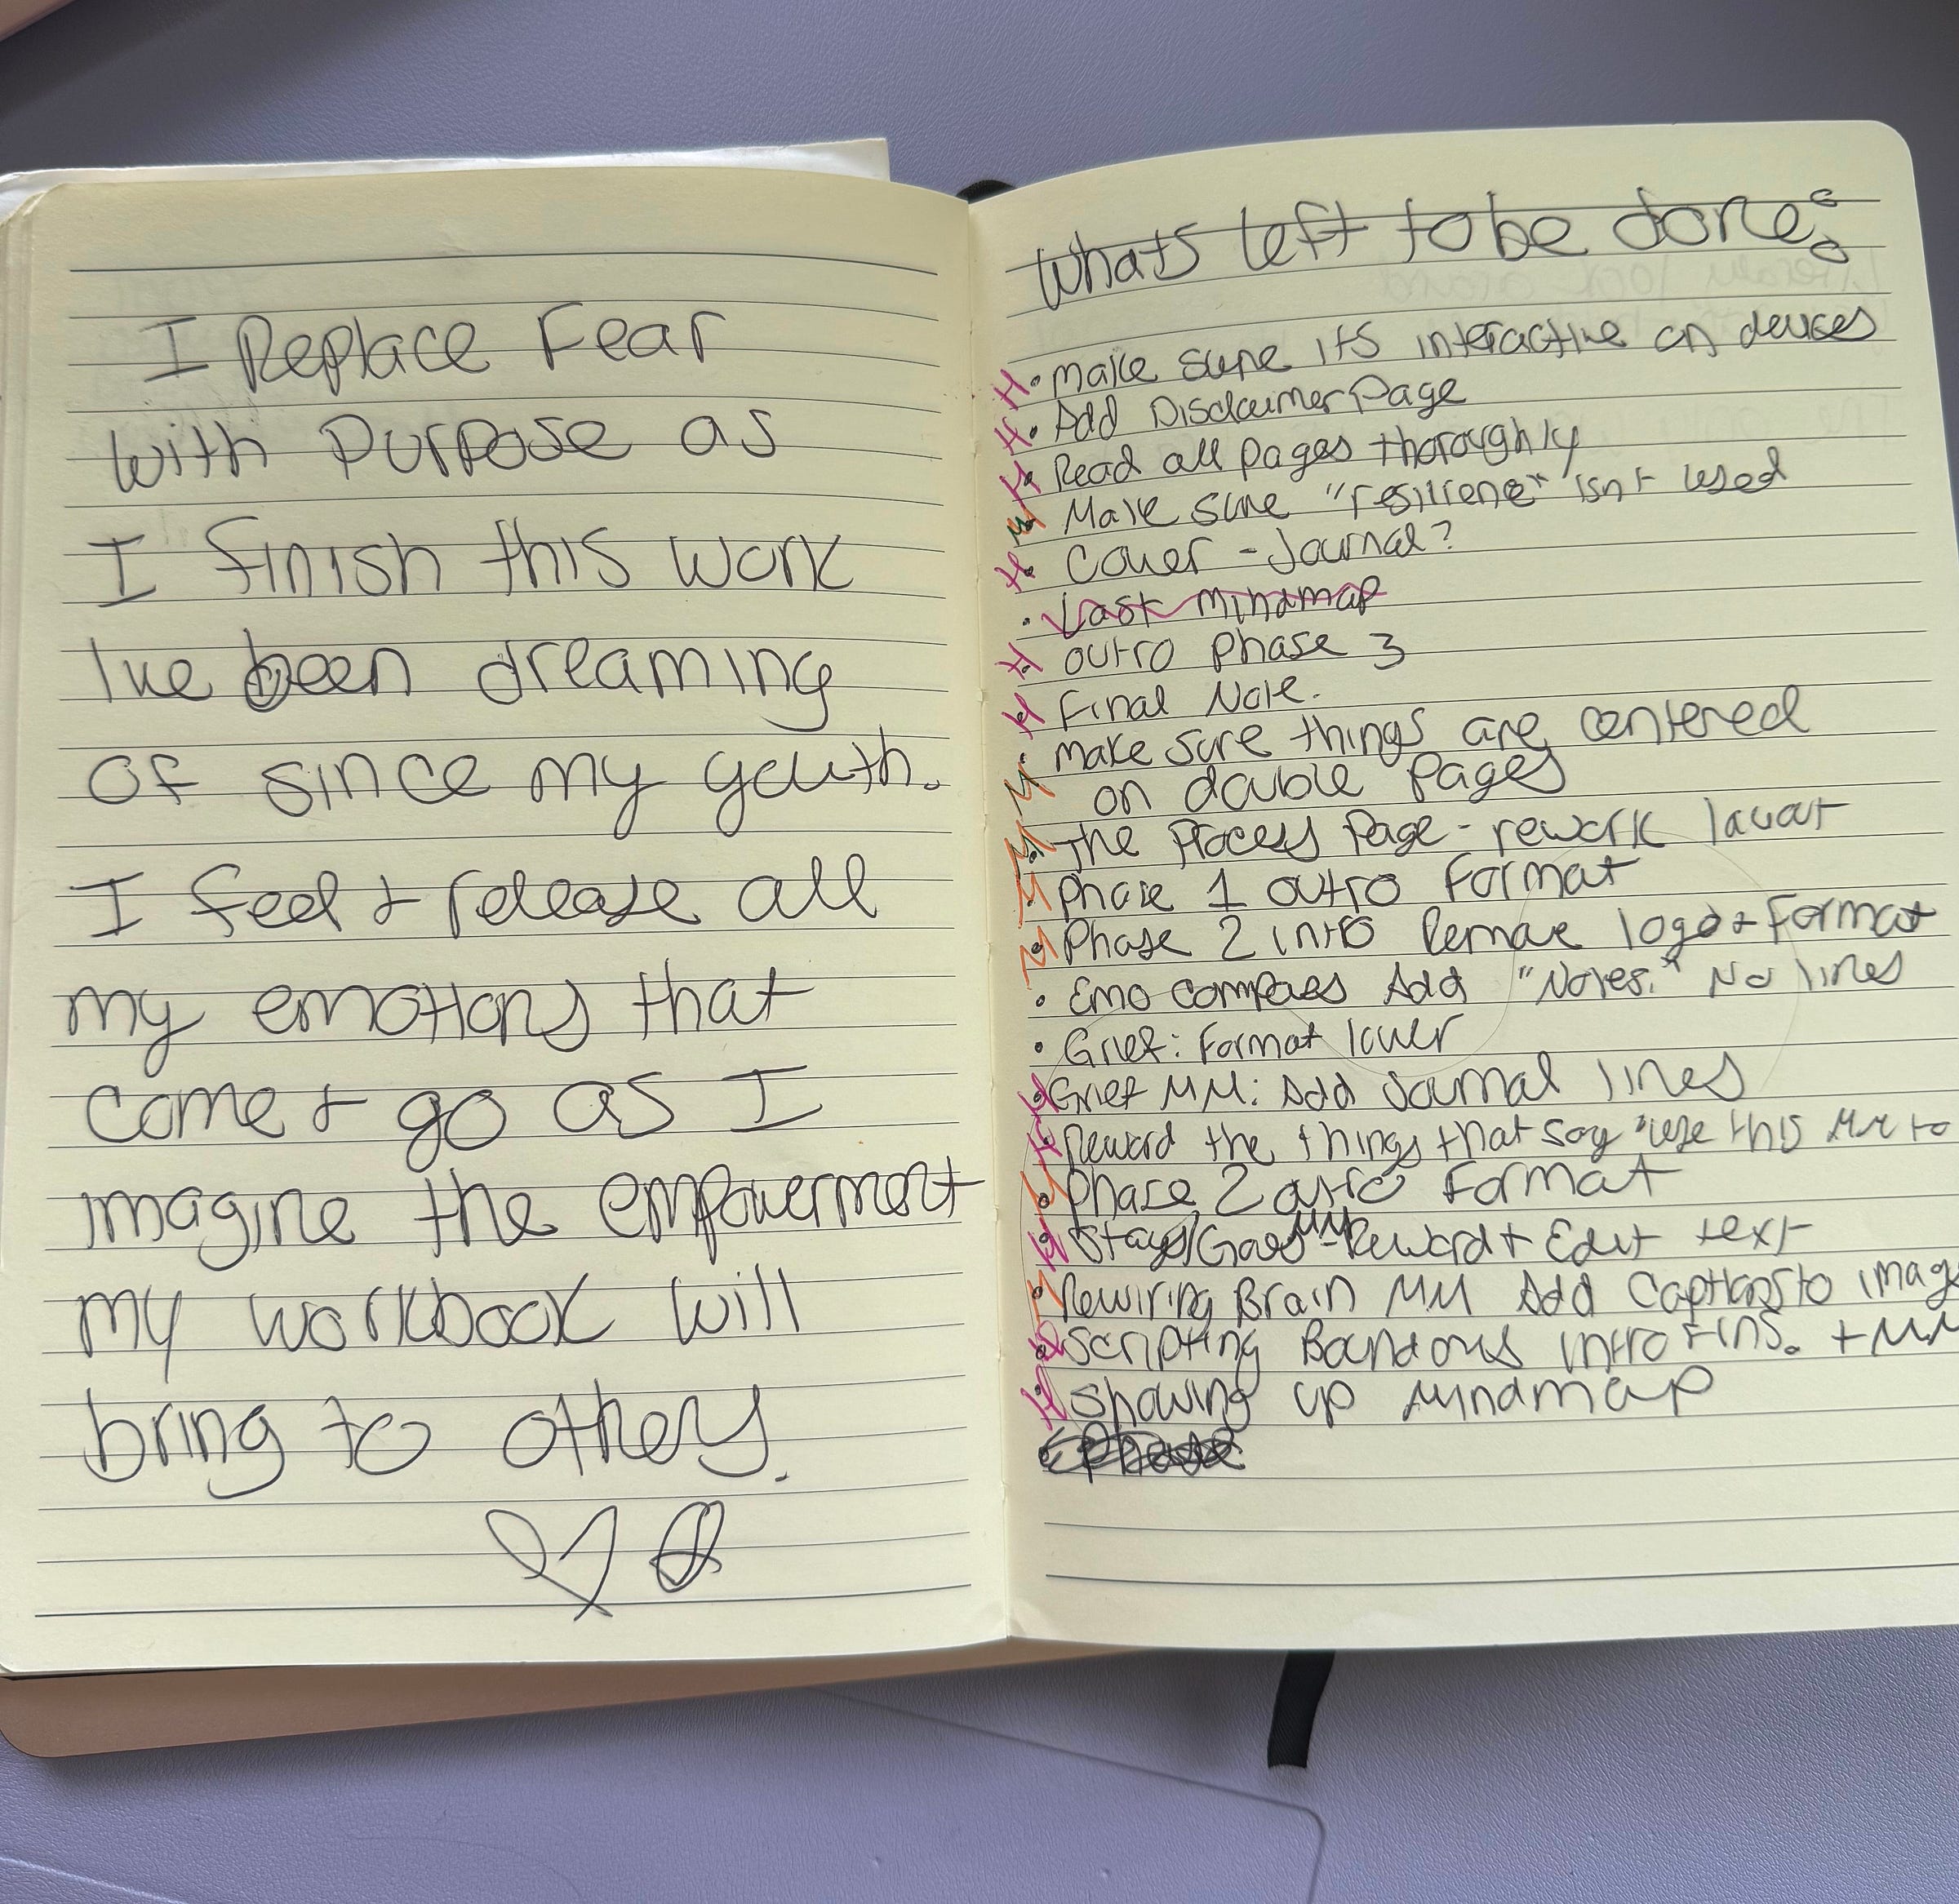 I Replace Fear
with Purpose as
I finish this work
I've been dreaming
of since my youth.
I feel + release all
my emotions that
come + go as I
imagine the empowerment
my workbook will
bring to others.
Whats left to be done:
H • Make sure its interactive on devices
H • Add Disclaimer Page
H • Read all pages thoroughly
M • Make sure "resilience" isnt used
H • Cover - Journal?
• Last Mindmap
H • Outro Phase 3
H • Final Note.
M • Make sure things are centered
on double pages
M • The Process Page - rework layout
M • Phase 1 outro format
M • Phase 2 intro Remove logo + Format
• Emo compass Add "Notes." No lines
• Grief: Format lower
H • Grief MM: Add Journal lines
H • Reword the things that say "use this MM to
M • Phase 2 outro format
H • Stays/Goes MM - Reword + Edit text
M • Rewiring Brain MM Add Captions to imag
H • Scripting Boundaries intro + MM
H • Showing up Mindmap
Phase